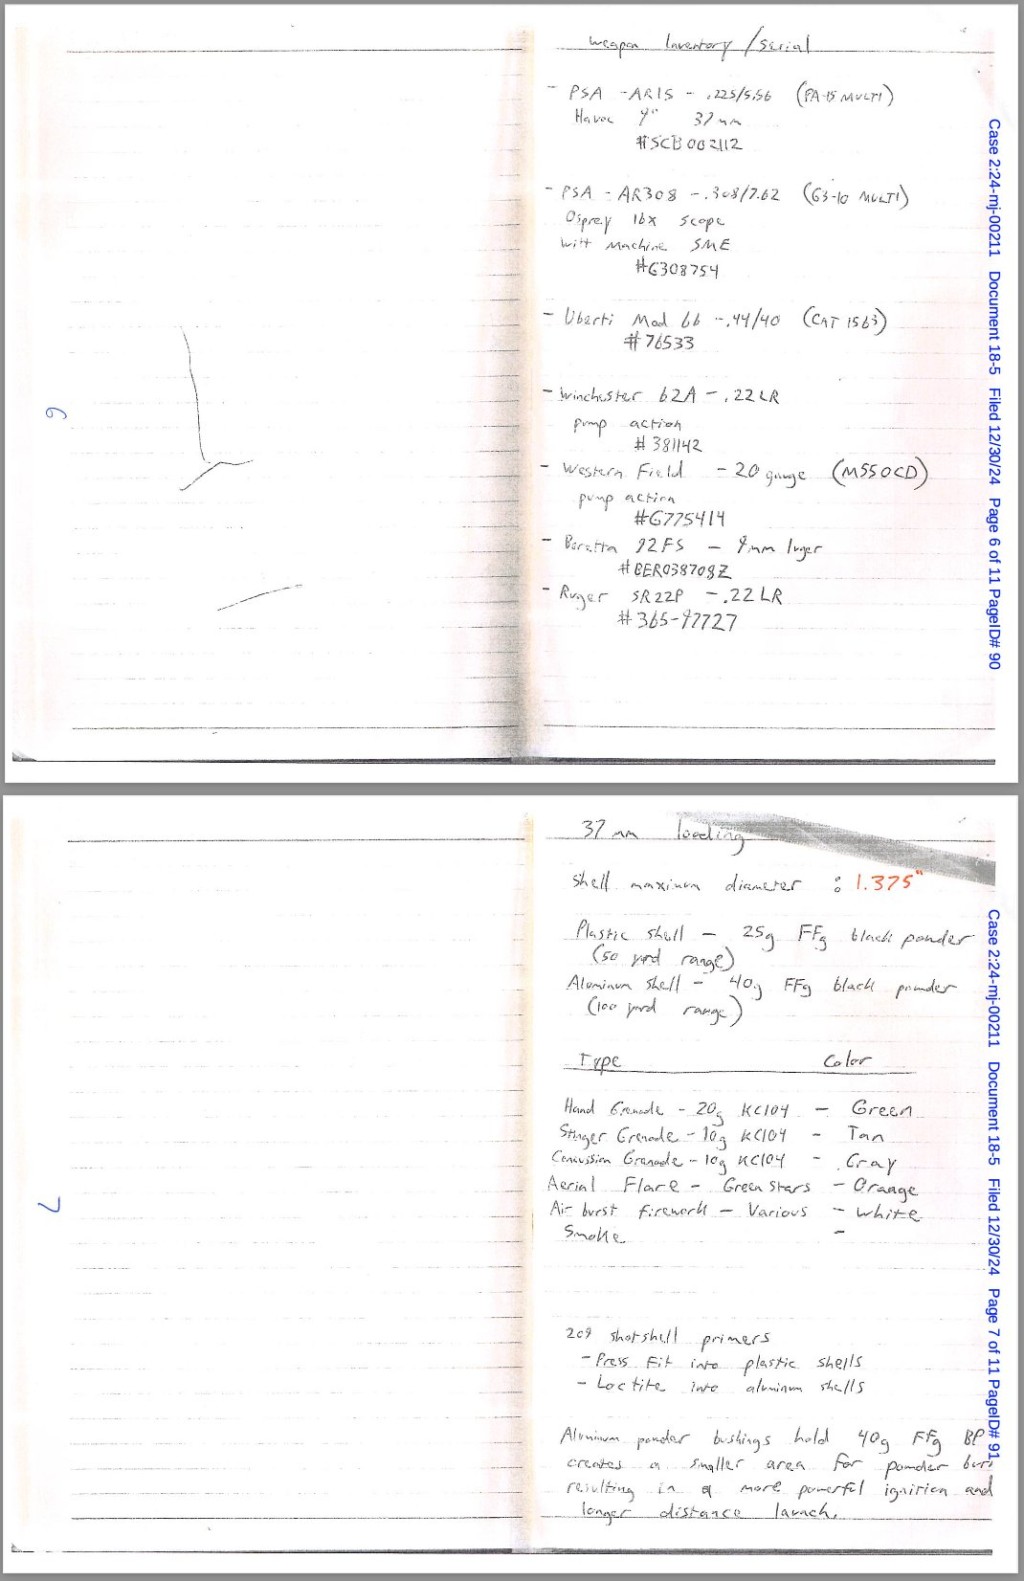 Weapon Inventory / Serial
- PSA - AR15 - .225/5.56 (PA-15 MULTI)
Havoc 9" 37mm
#SCB002112
- PSA - AR308 - .308/7.62 (G3-10 MULTI)
Osprey 16x scope
Witt Machine SME
#G308754
- Uberti Mod 66 - .44/40 (CAT 1563)
#76533
- Winchester 62A - .22LR
pump action
#381142
- Western Field - 20 gauge (M550CD)
pump action
#G775414
- Beretta 92FS - 9mm luger
#BER038708Z
- Ruger SR22P - .22LR
#365-97727
6
Case 2:24-mj-00211 Document 18-5 Filed 12/30/24 Page 6 of 11 PageID# 90
37 mm loading
Shell maximum diameter : 1.375"
Plastic shell - 25g FFg black powder
(50 yard range)
Aluminum shell - 40g FFg black powder
(100 yard range)
Type Color
Hand Grenade - 20g KClO4 - Green
Stinger Grenade - 10g KClO4 - Tan
Concussion Grenade - 10g KClO4 - Gray
Aerial Flare - Green stars - Orange
Air burst firework - Various - white
Smoke -
209 shotshell primers
- Press Fit into plastic shells
- Loctite into aluminum shells
Aluminum powder bushings hold 40g FFg BP
creates a smaller area for powder burn
resulting in a more powerful ignition and
longer distance launch.
7
Case 2:24-mj-00211 Document 18-5 Filed 12/30/24 Page 7 of 11 PageID# 91